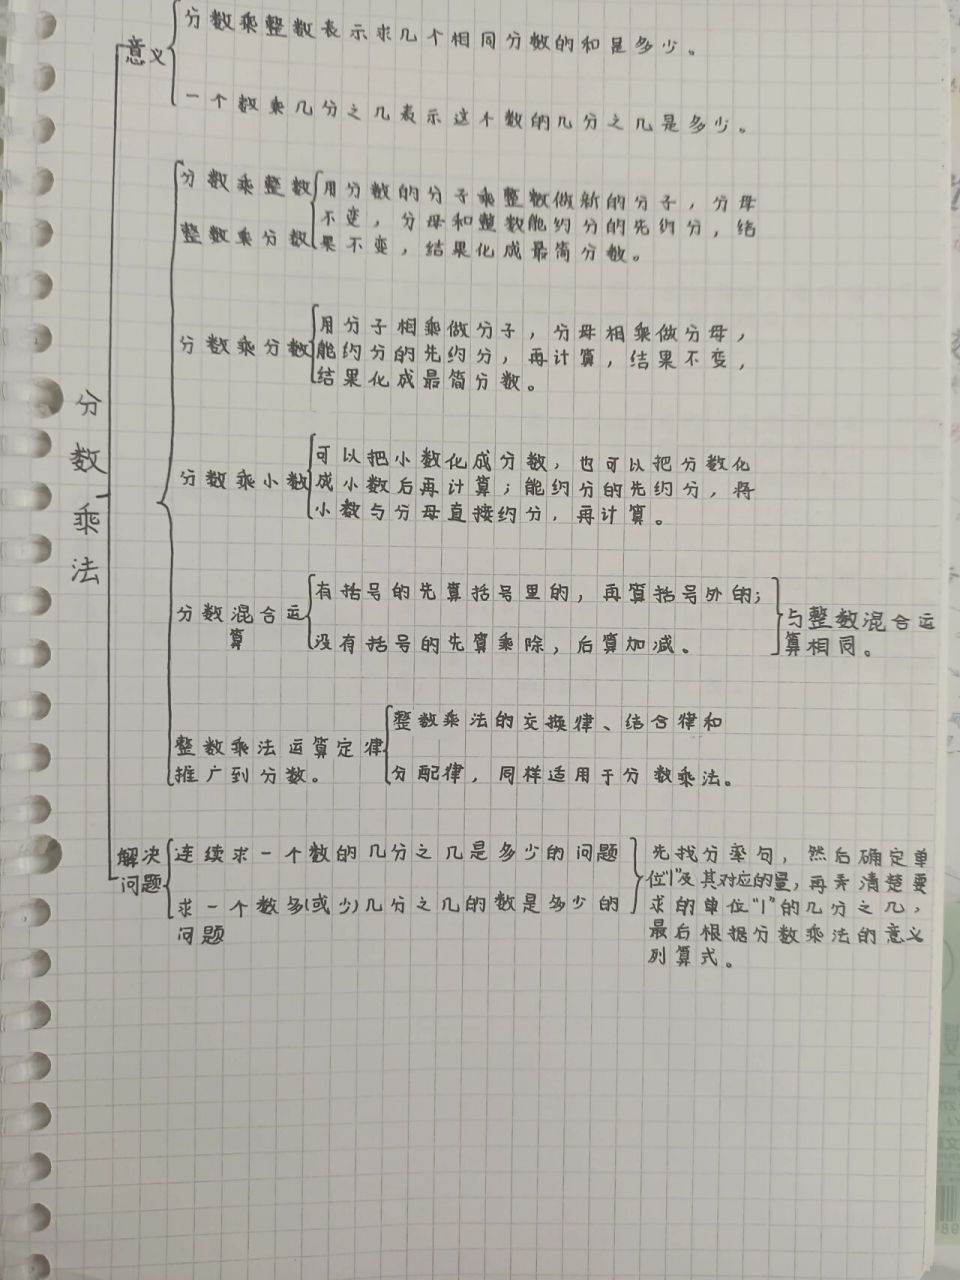 分数乘法
意义
分数乘整数表示求几个相同分数的和是多少。
一个数乘几分之几表示这个数的几分之几是多少。
分数乘整数
整数乘分数
用分数的分子乘整数做新的分子，分母
不变，分母和整数能约分的先约分，结
果不变，结果化成最简分数。
分数乘分数
用分子相乘做分子，分母相乘做分母，
能约分的先约分，再计算，结果不变，
结果化成最简分数。
分数乘小数
可以把小数化成分数，也可以把分数化
成小数后再计算；能约分的先约分，将
小数与分母直接约分，再计算。
分数混合运
算
有括号的先算括号里的，再算括号外的；
没有括号的先算乘除，后算加减。
与整数混合运
算相同。
整数乘法运算定律
推广到分数。
整数乘法的交换律、结合律和
分配律，同样适用于分数乘法。
解决
问题
连续求一个数的几分之几是多少的问题
求一个数多(或少)几分之几的数是多少的
问题
先找分率句，然后确定单
位"1"及其对应的量，再弄清楚要
求的单位"1"的几分之几，
最后根据分数乘法的意义
列算式。